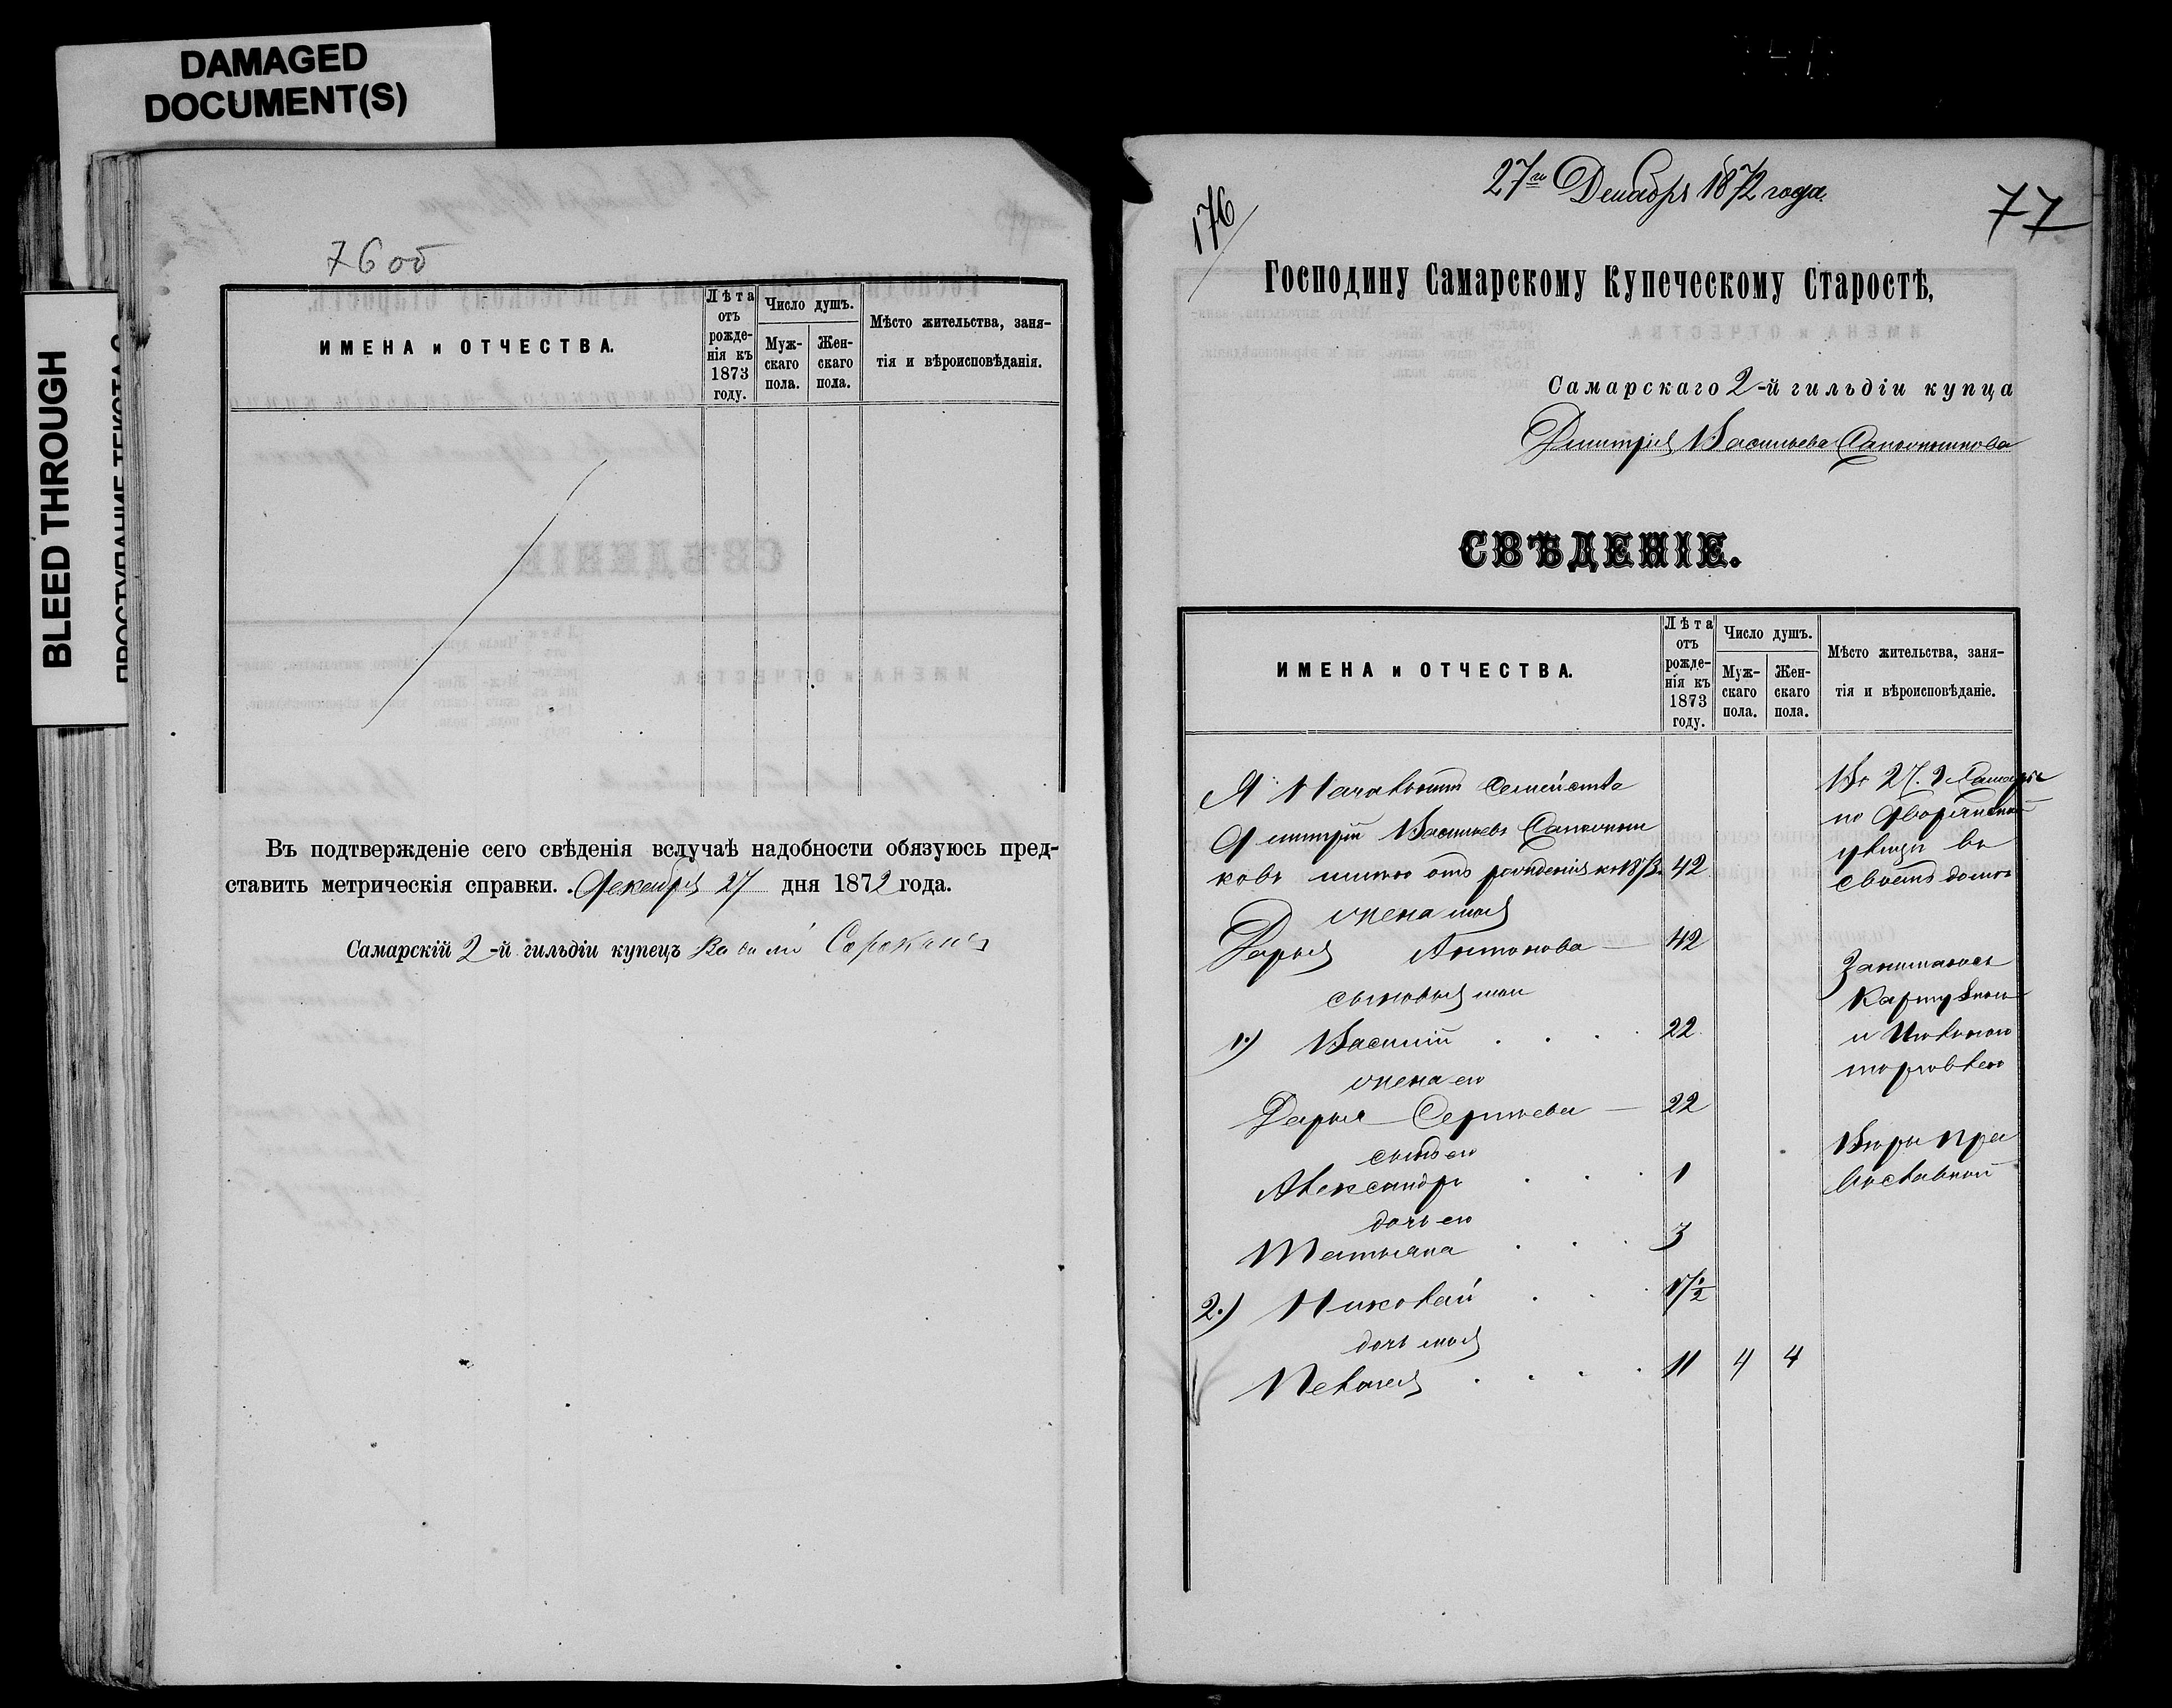 DAMAGED
DOCUMENT(S)
BLEED THROUGH
76 об
ИМЕНА и ОТЧЕСТВА.
Лѣта отъ рожденія къ 1873 году.
Число душъ.
Мужскаго пола.
Женскаго пола.
Мѣсто жительства, заня-
тія и вѣроисповѣданія.
Въ подтвержденіе сего свѣденія вслучаѣ надобности обязуюсь пред-
ставить метрическія справки. Декабря 27 дня 1872 года.
Самарскій 2-й гильдіи купецъ Василій Сорокинъ
27го Декабря 1872 года.
176
77
Господину Самарскому Купеческому Старостѣ,
Самарскаго 2-й гильдіи купца
Дмитрія Васильева Сапожникова
СВѢДЕНІЕ.
ИМЕНА и ОТЧЕСТВА.
Лѣта отъ рожденія къ 1873 году.
Число душъ.
Мужскаго пола.
Женскаго пола.
Мѣсто жительства, заня-
тія и вѣроисповѣданіе.
Я Начальникъ Семейства
Дмитрій Васильевъ Сапожни
ковъ отъ рожденія къ 1873. 42
жена моя
Дарья Антонова 42
сыновья мои
1.) Василій 22
жена его
Дарья Сергѣева 22
сынъ его
Александръ 1
дочь его
Татьяна 3
2.) Николай 17 1/2
дочь моя
Пелагея 11 4 4
Въ г. Самарѣ
по Дворянской
улицѣ въ
своемъ домѣ
Занимаюсь
Картузною
и
торговлею
Вѣры Пра
вославной